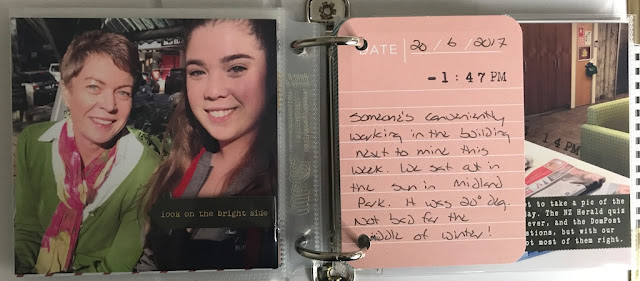 look on the bright side
DATE 20/6/2017
-1:47 PM
Someone's conveniently
working in the building
next to mine this
week. We sat out in
the sun in Midland
Park. It was 20° deg.
Not bad for the
middle of winter!
1 4 PM
ot to take a pic of the
day. The NZ Herald quiz
ever, and the DomPost
stions, but with our
ot most of them right.